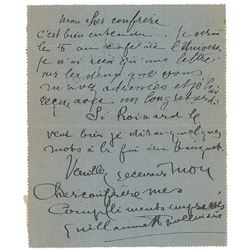 Mon cher confrère
c'est bien entendu. Je serai
le 5 au café de l'Univers.
Je n'ai reçu qu'une lettre
sur les deux que vous
m'avez adressées et je l'ai
reçue avec un long retard.
Si Roinard le
veut bien je dirai quelques
mots à la fin du banquet
Veuillez recevoir mon
cher confrère mes
compliments empressés
Guillaume Apollinaire